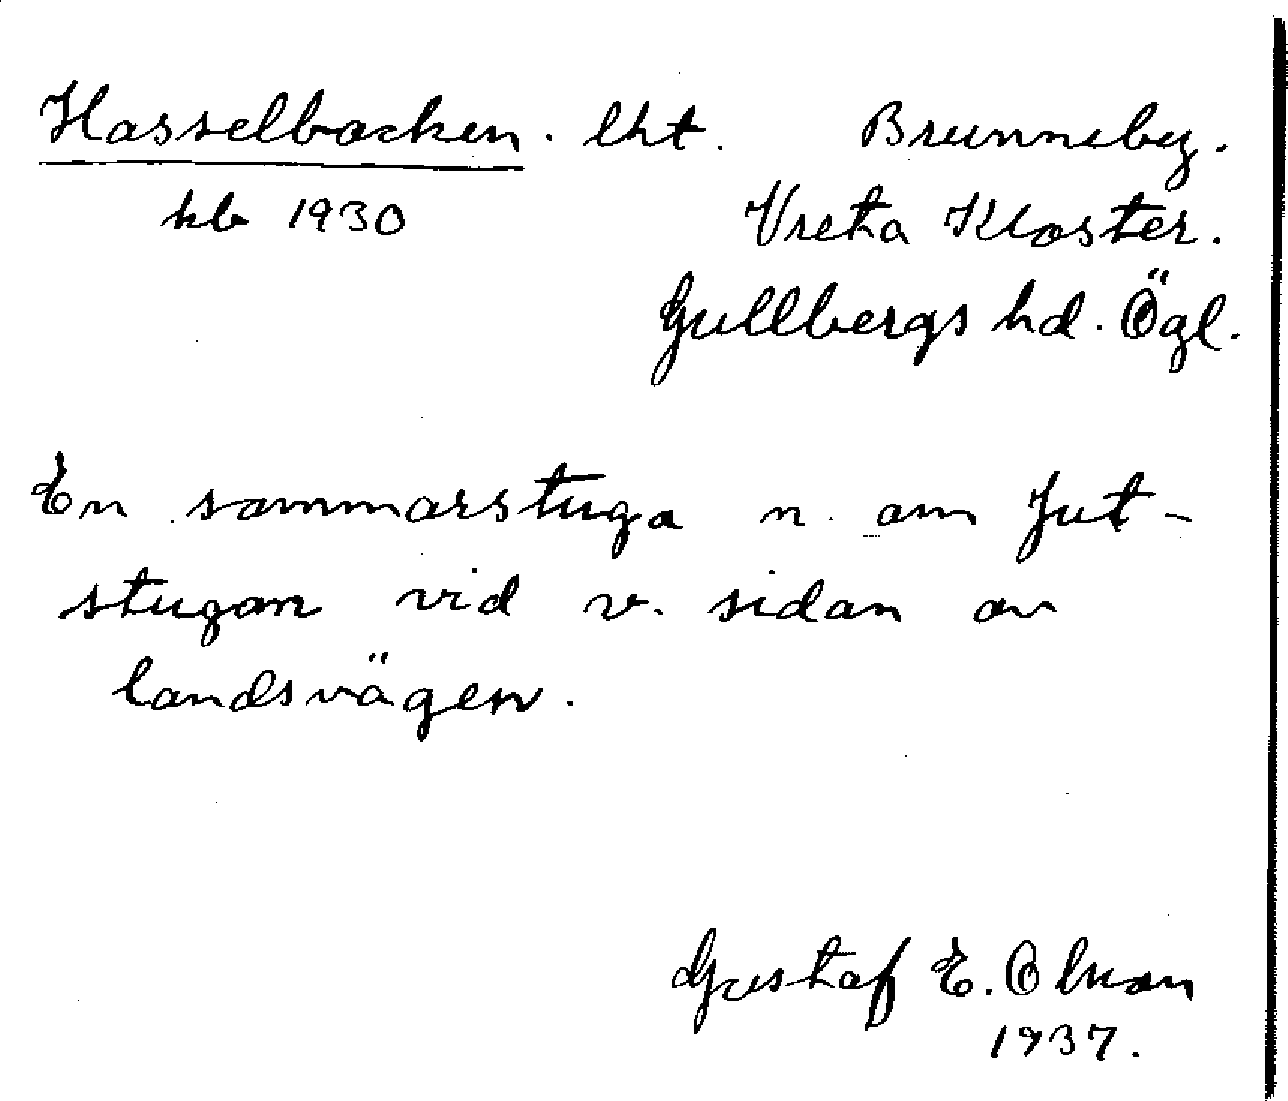 Hasselbacken. lht. Brunneby.
kb 1930 Vreta Kloster.
Gullbergs hd. Ögl.
En sommarstuga n. om Jut-
stugan vid v. sidan av
landsvägen.
Gustaf E. Olson
1937.